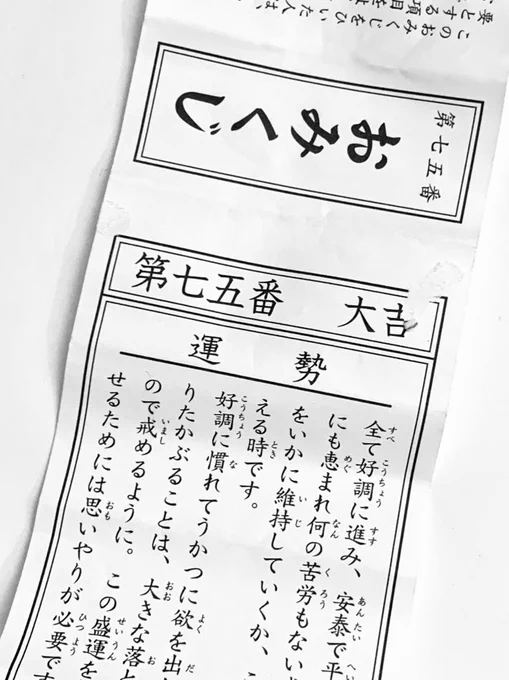 このおみくじをひいた人は、
要とする項目をは
第七五番
おみくじ
第七五番 大吉
運勢
全て好調に進み、安泰で平
にも恵まれ何の苦労もない
をいかに維持していくか、
える時です。
好調に慣れてうかつに欲を出
りたかぶることは、大きな落と
ので戒めるように。この盛運を
せるためには思いやりが必要です